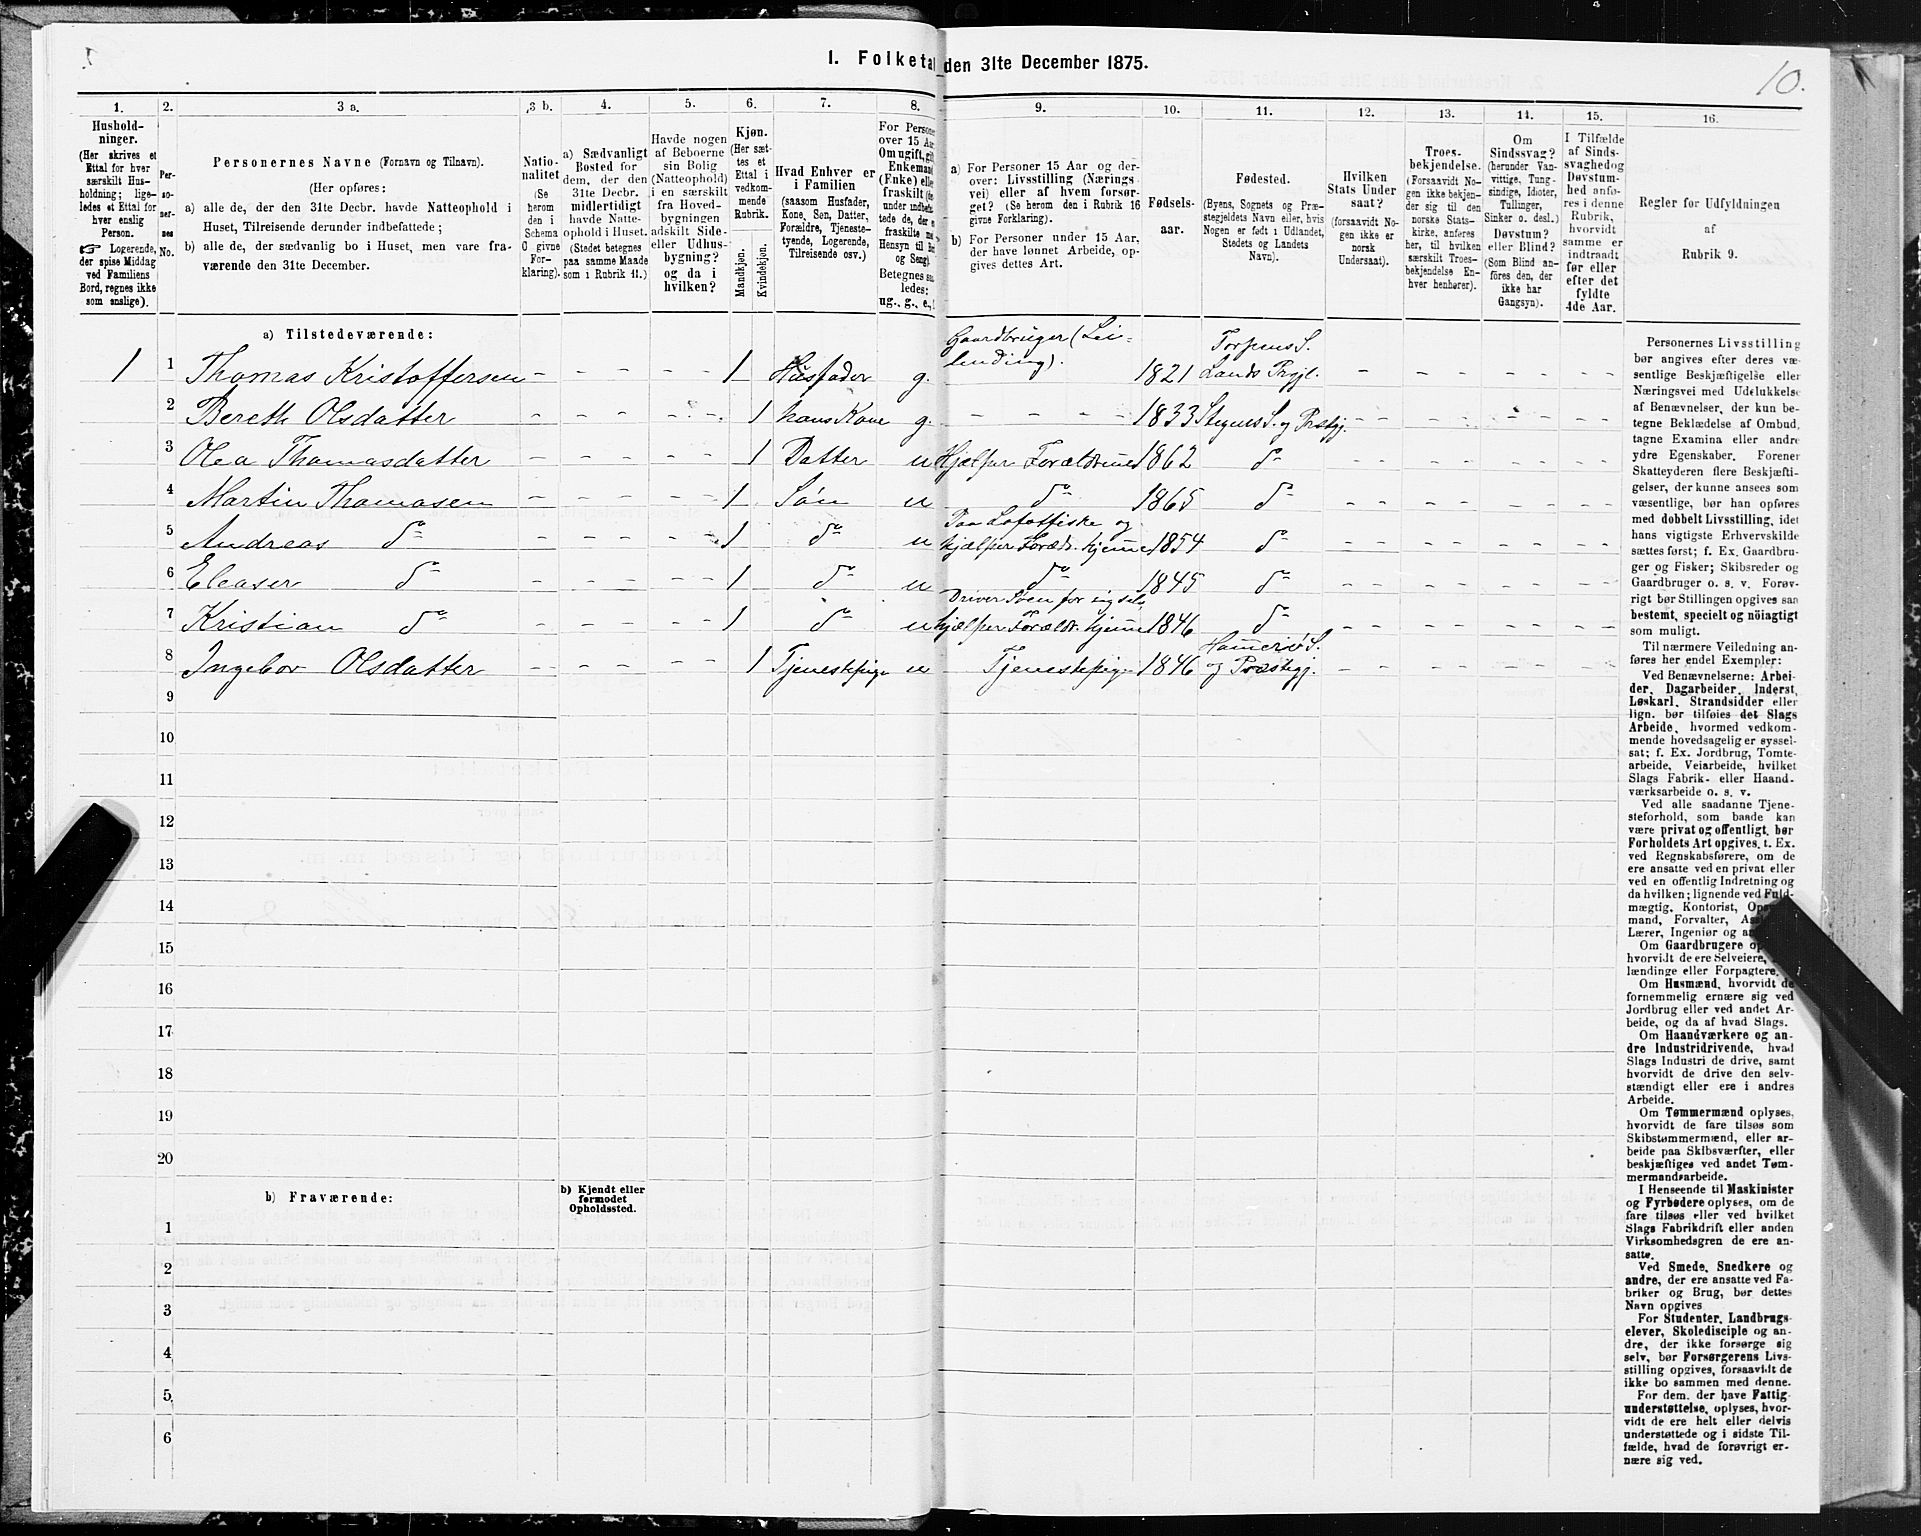 1. Folketal den 31te December 1875.
10.
1.
2.
3 a.
3 b.
4.
5.
6.
7.
8.
9.
10.
11.
12.
13.
14.
15.
16.
Hushold-
ninger.
(Her skrives et
Ettal for hver
særskilt Hus-
holdning; lige-
ledes et Ettal for
hver enslig
Person.
☞ Logerende,
der spise Middag
ved Familiens
Bord, regnes ikke
som enslige).
Per-
so-
ner-
nes
No.
Personernes Navne (Fornavn og Tilnavn).
(Her opføres:
a) alle de, der den 31te Decbr. havde Natteophold i
Huset, Tilreisende derunder indbefattede;
b) alle de, der sædvanlig bo i Huset, men vare fra-
værende den 31te December.
Natio-
nalitet
(Se
herom
den i
Schema
O givne
For-
klaring).
a) Sædvanligt
Bosted for
dem, der den
31te Decbr.
midlertidigt
havde Natte-
ophold i Huset.
(Stedet betegnes
paa samme Maade
som i Rubrik 11.)
Havde nogen
af Beboerne
sin Bolig
(Natteophold)
i en særskilt
fra Hoved-
bygningen
adskilt Side-
eller Udhus-
bygning?
og da i
hvilken?
Kjøn.
(Her sæt-
tes et
Ettal i
vedkom-
mende
Rubrik.
Mandkjøn.
Kvindekjøn.
Hvad Enhver er
i Familien
(saasom Husfader,
Kone, Søn, Datter,
Forældre, Tjeneste-
tyende, Logerende,
Tilreisende osv.)
For Persone
over 15 Aar
Om ugift, gift
Enkemand
(Enke) elle
fraskilt
under indbefat
tede de, der e
fraskilte
Hensyn til Bo
og Seng).
Betegnes saa
ledes:
ug., g., e.,
a) For Personer 15 Aar og der-
over: Livsstilling (Nærings
vei) eller af hvem forsør-
get? (Se herom den i Rubrik 16
givne Forklaring).
b) For Personer under 15 Aar,
der have lønnet Arbeide, op-
gives dettes Art.
Fødsels-
aar.
Fødested.
(Byens, Sognets og Præ-
stegjeldets Navn eller, hvis
Nogen er født i Udlandet,
Stedets og Landets
Navn).
Hvilken
Stats Under
saat?
(forsaavidt No-
gen ikke er
norsk
Undersaat).
Troes-
bekjendelse.
(Forsaavidt No-
gen ikke bekjen-
der sig til den
norske Stats-
kirke, anføres
her, til hvilken
særskilt Troes-
bekjendelse En-
hver henhører).
Om
Sindssvag?
(herunder Van-
vittige, Tung-
sindige, Idioter,
Tullinger,
Sinker o. desl.)
Døvstum?
eller Blind?
(Som Blind an-
føres den, der
ikke har
Gangsyn).
I Tilfælde
af Sinds-
svaghed og
Døvstum-
hed anfø-
res i denne
Rubrik,
hvorvidt
samme er
indtraadt
før eller
efter det
fyldte
4de Aar.
Regler for Udfyldningen
af
Rubrik 9.
a) Tilstedeværende:
1 1 Thomas Kristoffersen - - - - - 1 Husfader g. Gaardbruger (Lei-
lending). 1821 Torpens S.
Lands Prgjl. - - - - - -
2 Bereth Olsdatter - - - - - 1 hans Kone g. - - - - 1833 Stegens S. og Præstgj. - - - - -
3 Olea Thomasdatter - - - - - 1 Datter u Hjælper Forældrene 1862 do - - - - - -
4 Martin Thomasen - - - - - 1 Søn u do 1865 do - - - - - -
5 Andreas do - - - - - 1 do u Paa Lofotfiske og
hjælper Foræld. hjemme 1854 do - - - - - -
6 Eleaser do - - - - - 1 do u do 1845 do - - - - - -
7 Kristian do - - - - - 1 do u Driver Søen for sig selv,
hjælper Foræld. hjemme 1846 do - - - - - -
8 Ingebor Olsdatter - - - - - 1 Tjenestepige u Tjenestepige 1846 Hamerø S.
og Præstegj. - - - - - -
9
10
11
12
13
14
15
16
17
18
19
20
b) Fraværende:
b) Kjendt eller
formodet
Opholdssted.
1
2
3
4
5
6
Personernes Livsstilling
bør angives efter deres væ-
sentlige Beskjæftigelse eller
Næringsvei med Udelukkelse
af Benævnelser, der kun be-
tegne Beklædelse af Ombud,
tagne Examina eller andre
ydre Egenskaber. Forener
Skatteyderen flere Beskjæfti-
gelser, der kunne ansees som
væsentlige, bør han opføres
med dobbelt Livsstilling, idet
hans vigtigste Erhvervskilde
sættes først; f. Ex. Gaardbru-
ger og Fisker; Skibsreder og
Gaardbruger o. s. v. Forøv-
rigt bør Stillingen opgives saa
bestemt, specielt og nöiagtigt
som muligt.
Til nærmere Veiledning an-
føres her endel Exempler:
Ved Benævnelserne: Arbei-
der, Dagarbeider, Inderst,
Løskarl, Strandsidder eller
lign. bør tilføies det Slags
Arbeide, hvormed vedkom-
mende hovedsagelig er syssel-
sat; f. Ex. Jordbrug, Tomte-
arbeide, Veiarbeide, hvilket
Slags Fabrik- eller Haand-
værksarbeide o. s. v.
Ved alle saadanne Tjene-
steforhold, som baade kan
være privat og offentligt, bør
Forholdets Art opgives, t. Ex.
ved Regnskabsførere, om de
ere ansatte ved en privat eller
ved en offentlig Indretning og
da hvilken; lignende ved Fuld-
mægtig, Kontorist,
mand, Forvalter,
Lærer, Ingeniør og
Om Gaardbrugere
hvorvidt de ere Selveiere,
lændinge eller Forpagtere.
Om Husmænd, hvorvidt de
fornemmelig ernære sig ved
Jordbrug eller ved andet Ar-
beide, og da af hvad Slags.
Om Haandværkere og an-
dre Industridrivende, hvad
Slags Industri de drive, samt
hvorvidt de drive den selv-
stændigt eller ere i andres
Arbeide.
Om Tømmermænd oplyses,
hvorvidt de fare tilsøs som
Skibstømmermænd, eller ar-
beide paa Skibsværfter, eller
beskjæftiges ved andet Tøm-
mermandsarbeide.
I Henseende til Maskinister
og Fyrbødere oplyses, om de
fare tilsøs eller ved hvilket
Slags Fabrikdrift eller anden
Virksomhedsgren de ere an-
satte.
Ved Smede, Snedkere og
andre, der ere ansatte ved Fa-
briker og Brug, bør dettes
Navn opgives
For Studenter, Landbrugs-
elever, Skoledisciple og an-
dre, der ikke forsørge sig
selv, bør Forsørgerens Livs-
stilling opgives, forsaavidt de
ikke bo sammen med denne.
For dem, der have Fattig-
understøttelse, oplyses, hvor-
vidt de ere helt eller delvis
understøttede og i sidste Til-
fælde, hvad de forøvrigt er-
nære sig ved.